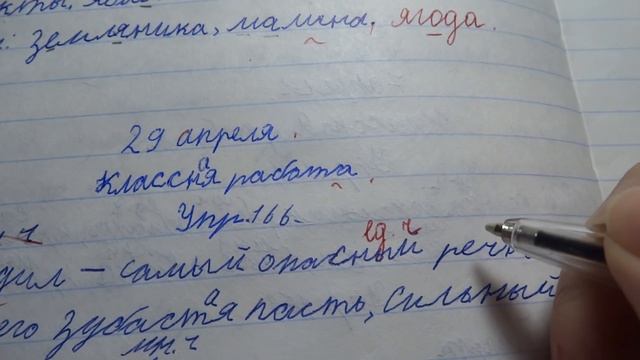 земляника, малина, ягода.
29 апреля.
Классная работа.
Упр. 166.
ед. ч
– самый опасный
зубастая пасть, сильный
мн. ч